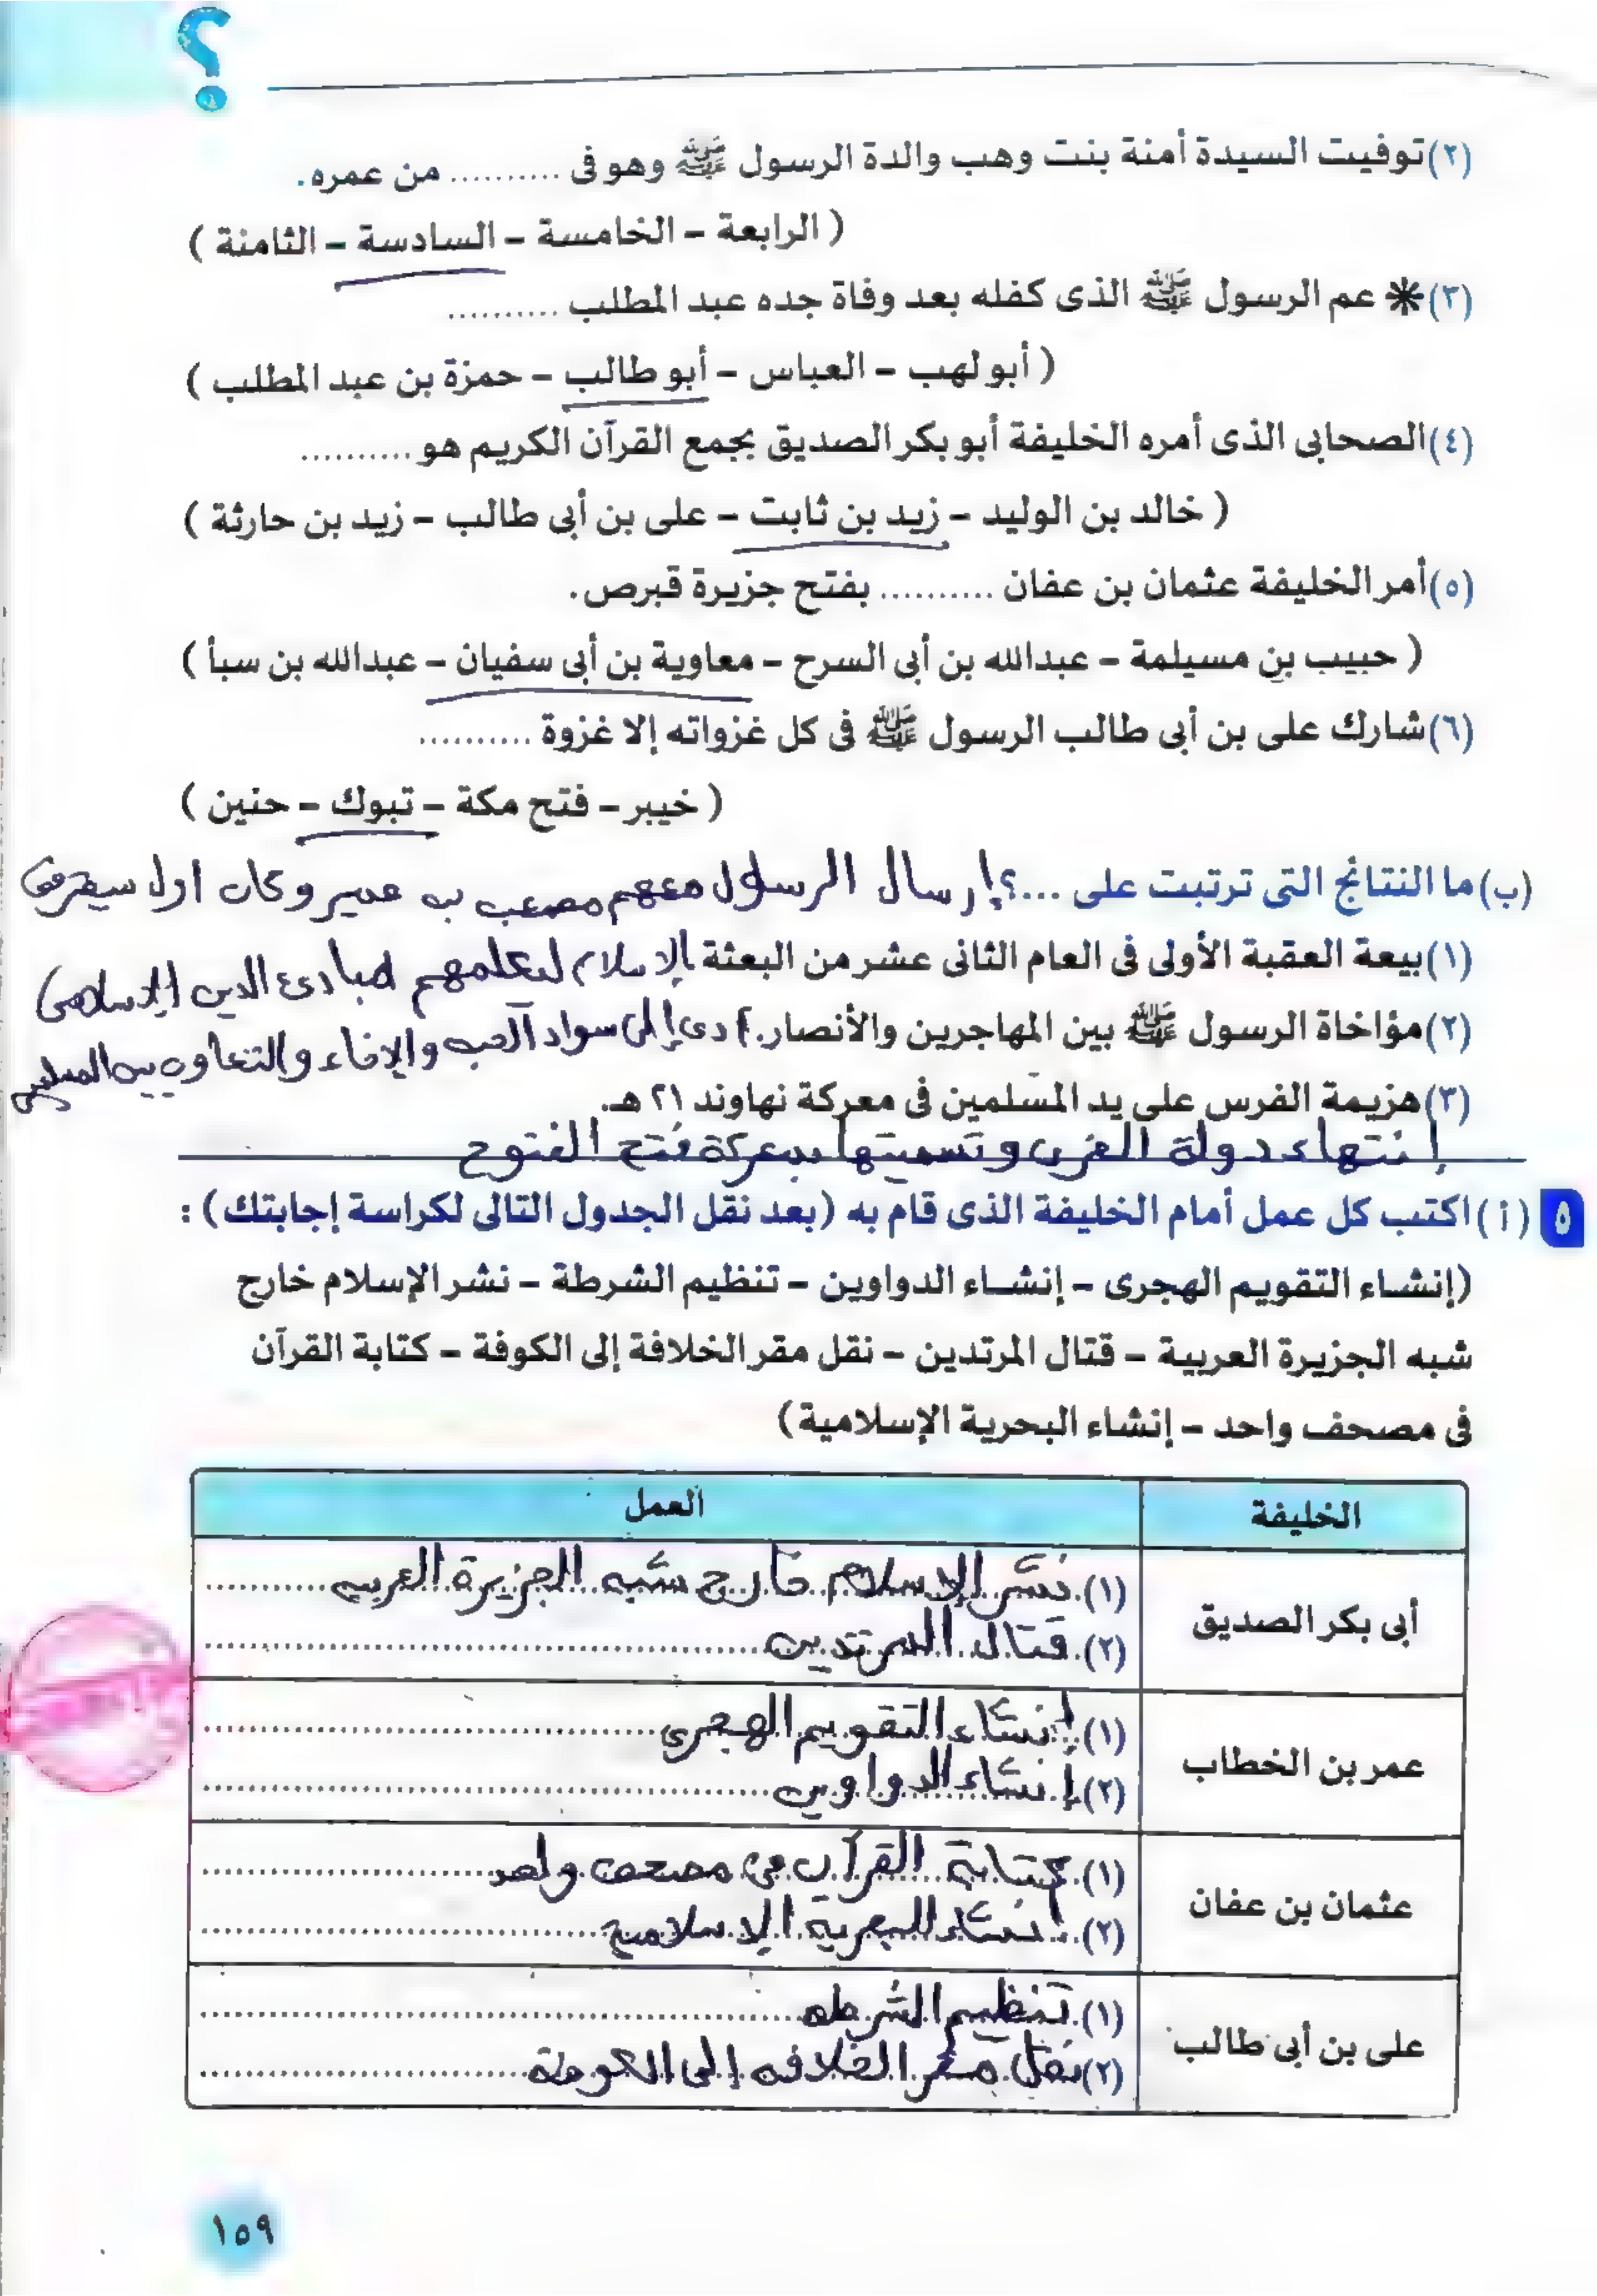 ؟
(٢) توفيت السيدة أمنة بنت وهب والدة الرسول ﷺ وهو فى .......... من عمره.
( الرابعة - الخامسة - السادسة - الثامنة )
(٣) * عم الرسول ﷺ الذى كفله بعد وفاة جده عبد المطلب ..........
( أبو لهب - العباس - أبو طالب - حمزة بن عبد المطلب )
(٤) الصحابى الذى أمره الخليفة أبو بكر الصديق بجمع القرآن الكريم هو ..........
( خالد بن الوليد - زيد بن ثابت - على بن أبى طالب - زيد بن حارثة )
(٥) أمر الخليفة عثمان بن عفان .......... بفتح جزيرة قبرص.
( حبيب بن مسيلمة - عبدالله بن أبى السرح - معاوية بن أبى سفيان - عبدالله بن سبأ )
(٦) شارك على بن أبى طالب الرسول ﷺ فى كل غزواته إلا غزوة ..........
( خيبر - فتح مكة - تبوك - حنين )
(ب) ما النتائج التى ترتبت على ...؟ إرسال الرسول معهم مصعب بن عمير وكان أول سفير فى
(١) بيعة العقبة الأولى فى العام الثانى عشر من البعثة الإسلام ليعلمهم مبادئ الدين الإسلامى
(٢) مؤاخاة الرسول ﷺ بين المهاجرين والأنصار. أدى إلى سواد الحب والإخاء والتعاون بين المسلمين
(٣) هزيمة الفرس على يد المسلمين فى معركة نهاوند ٢١ هـ.
إنتهاء دولة الفرس وتسميتها بمعركة فتح الفتوح
٥ (أ) اكتب كل عمل أمام الخليفة الذى قام به (بعد نقل الجدول التالى لكراسة إجابتك) :
(إنشاء التقويم الهجرى - إنشاء الدواوين - تنظيم الشرطة - نشر الإسلام خارج
شبه الجزيرة العربية - قتال المرتدين - نقل مقر الخلافة إلى الكوفة - كتابة القرآن
فى مصحف واحد - إنشاء البحرية الإسلامية)
الخليفة العمل
أبى بكر الصديق
(١) نشر الإسلام خارج شبه الجزيرة العربيه
(٢) قتال المرتدين
عمر بن الخطاب
(١) إنشاء التقويم الهجرى
(٢) إنشاء الدواوين
عثمان بن عفان
(١) كتابة القرآن فى مصحف واحد
(٢) إنشاء البحرية الإسلامية
على بن أبى طالب
(١) تنظيم الشرطه
(٢) نقل مقر الخلافه إلى الكوفة
١٥٩